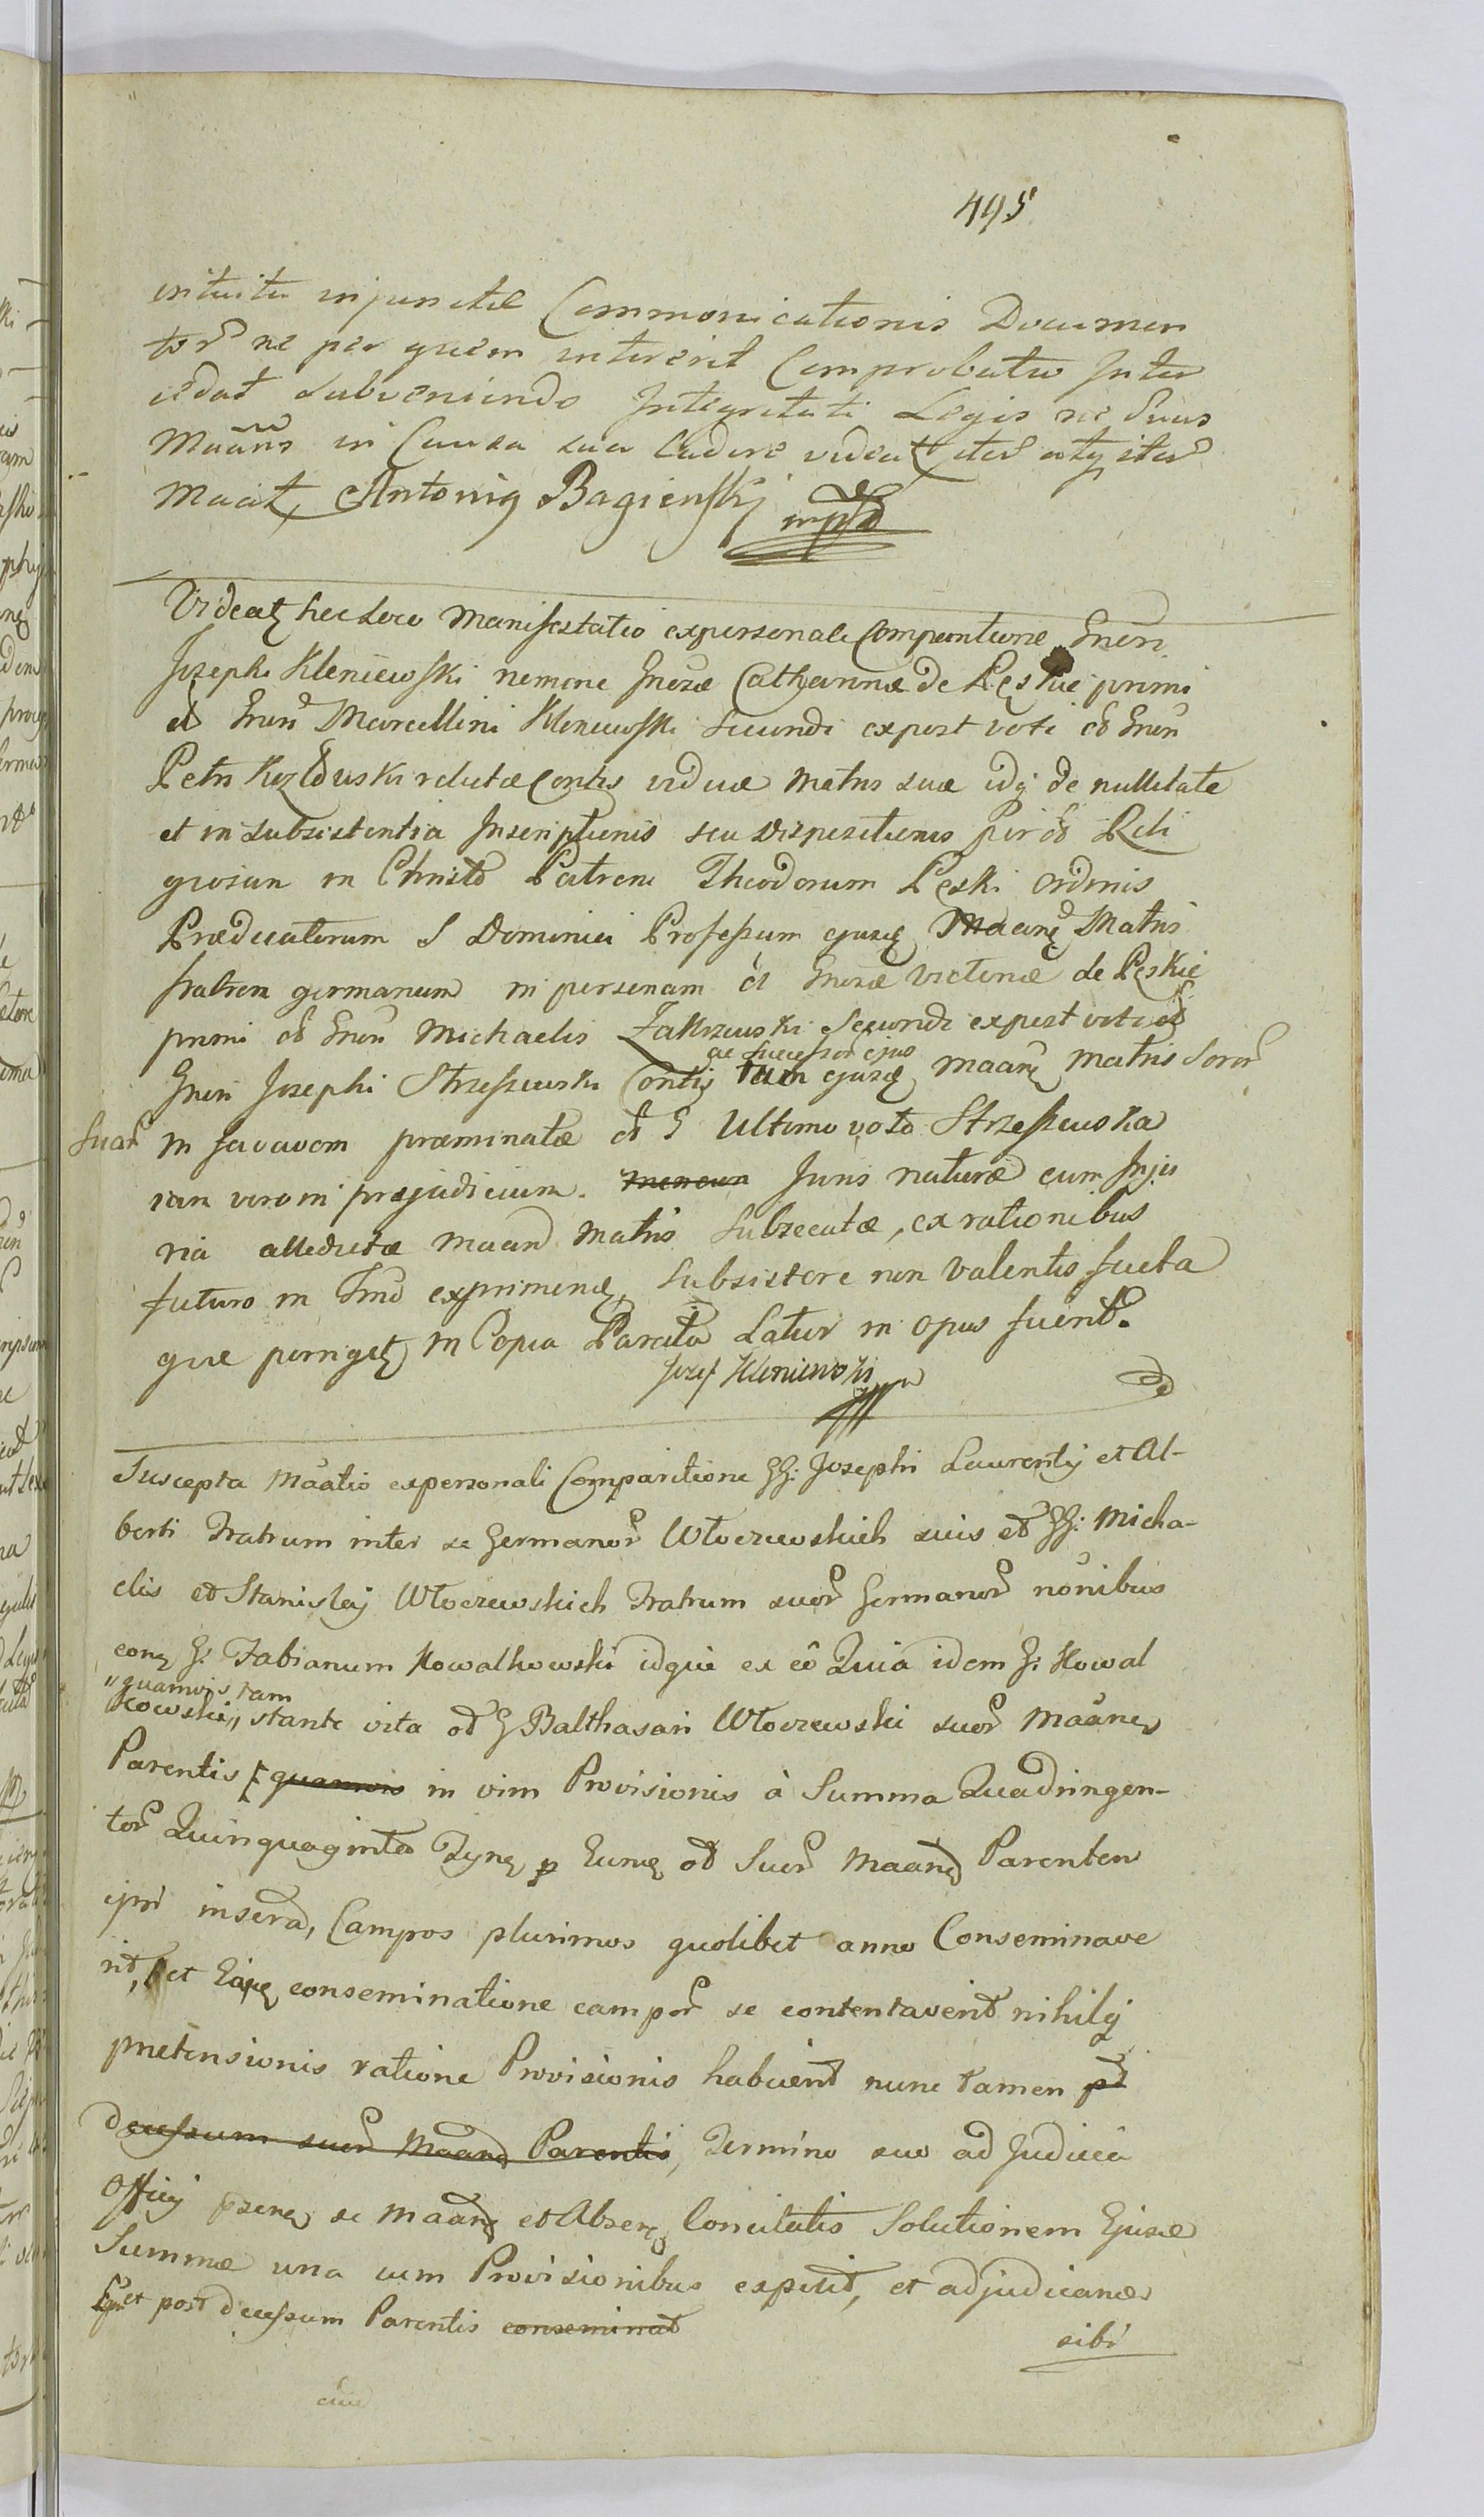 495
intuitu injunctæ Communicationis Documen
tor ne per quem interierit Comprobatur Inter
cedat Subveniendo Integritati Legis ne Suus
Maãns in Causa sua Cadere videat iter atq iter
Maat, Antonig Bagienski mpd
Videatz hec loco Manifestatio ex personali Comparitione Gnen
Josephi Kleniewski nomine Gnosæ Catharinæ de Pęskie primi
et Gnen Marcellini Kleniewski secundi ex post voti od Gnen
Petri Kozłowski relictæ Contis viduæ Matris suæ idq de nullitate
et in subsistentia Inscriptionis seu Dispositionis per od Reli
giosum in Christo Patrem Theodorum Pęski Ordinis
Prædicatorum S Dominici Professum ejusq Maanę Matris
fratrem germanum in personam od Gnosæ Victoriæ de Pęskie
primi od Gnen Michaelis Zakrzewski Secundi ex post voti od
ac successor ejus
Gnen Josephi Strzeszewski Contis tum ejusq Maanę Matris Soror
Suar in favorem præminatæ od G Ultimo voto Strzeszewska
jam vero in præjudicium Juris naturæ cum Inju
ria alledictæ Maan Matris Subsecutæ, ex rationibus
futuro in Tmo exprimenę, Subsistere non Valentis facta
que porrigetz in Copia Parata Latur in opus fuerit.
Jozef Kleniewski
Suscepta Maatio ex personali Comparitione GG: Josephi Laurentij et Al-
berti Fratrum inter se Germanor Włoczewskich suis et GG: Micha-
elis et Stanislaj Włoczewskich Fratrum suor Germanor noñibus
conę G: Fabianum Kowalkowski idque ex eô Quia idem G: Kowal
"quamvis tam
kowski,, stante vita od G Balthasari Włoczewski suor Maanę
Parentis quamvis in vim Provisionis à Summa Quadringen-
tor Quinquaginta Tynę p Eunę od Suor Maanę Parentem
ipsi inserta, Campos plurimos quolibet anno Conseminave
rit, et Eaque conseminatione campor se contentaverit nihilq
prætensionis ratione Provisionis habuerit nunc tamen pt
decessum suor Maanę Parentis, Termino suo ad Judicia
Officij psenę se Maanę et Absenę Concitatis Solutionem Ejusæ
Summæ una cum Provisionibus expetit, et adjudicanæ
et post decessum Parentis conseminat
sibi